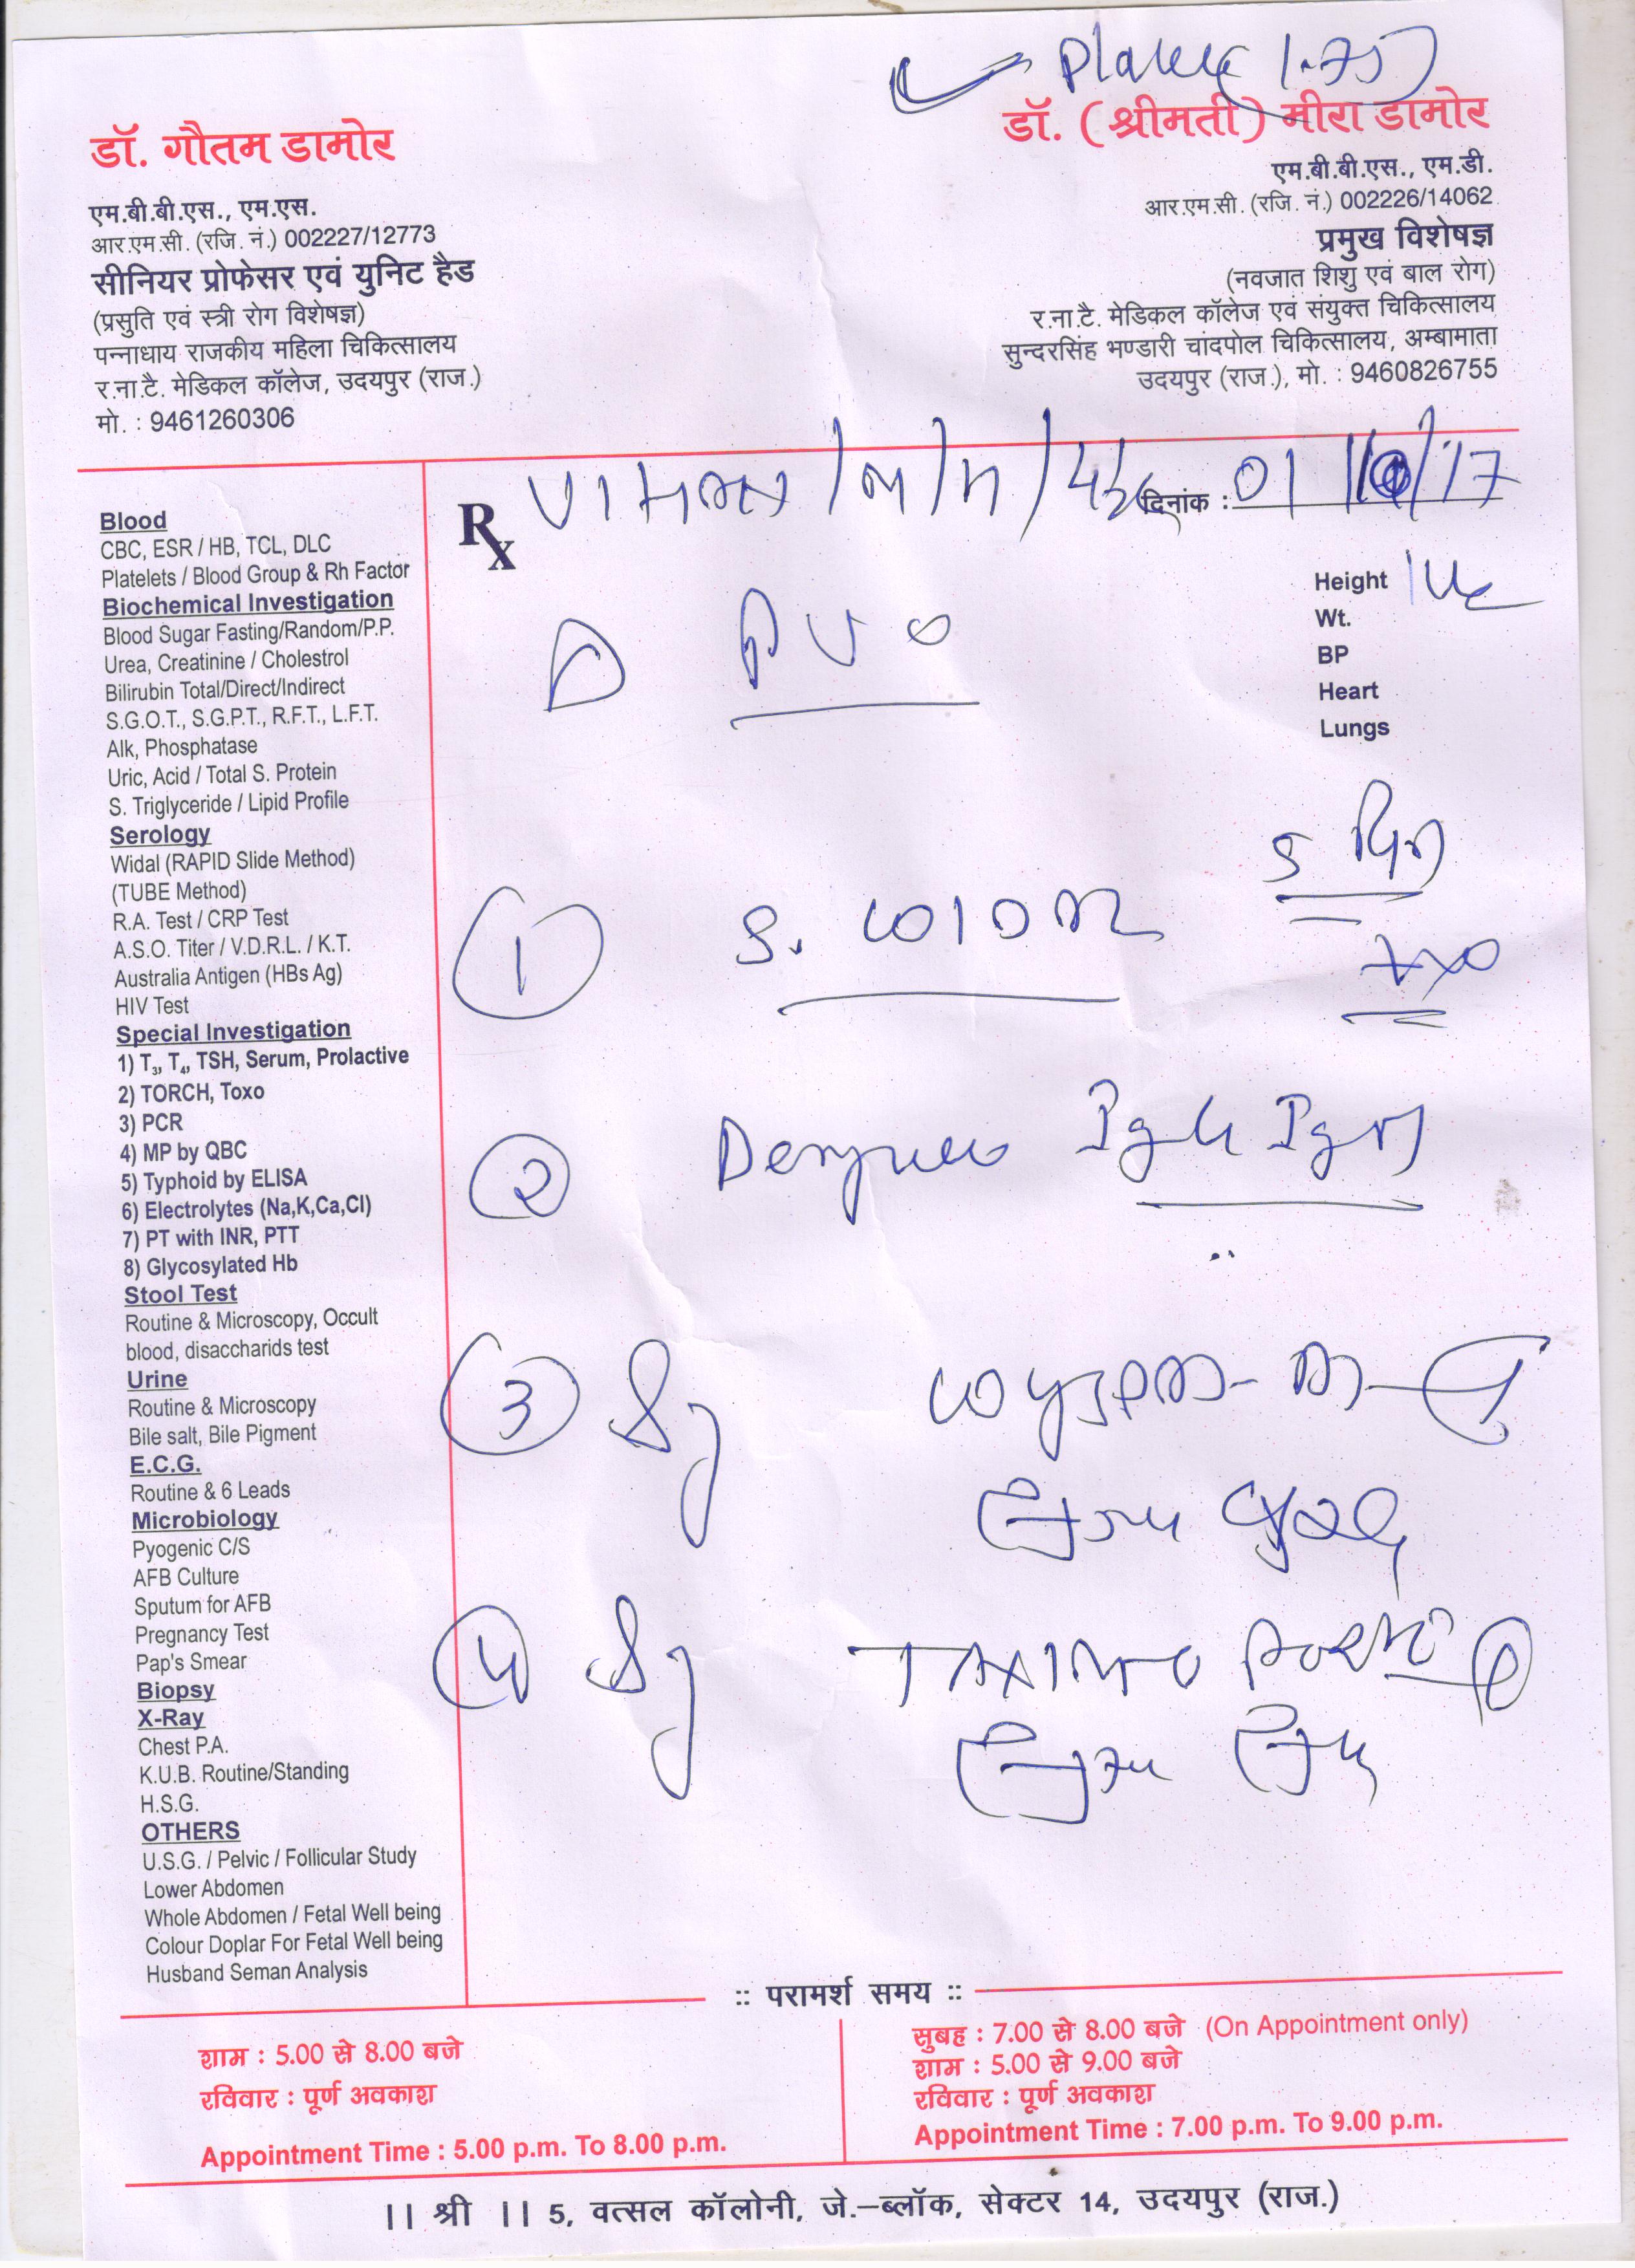 डॉ. गौतम डामोर
एम.बी.बी.एस., एम.एस.
आर.एम.सी. (रजि. नं.) 002227/12773
सीनियर प्रोफेसर एवं युनिट हैड
(प्रसुति एवं स्त्री रोग विशेषज्ञ)
पन्नाधाय राजकीय महिला चिकित्सालय
र.ना.टै. मेडिकल कॉलेज, उदयपुर (राज.)
मो. : 9461260306
डॉ. (श्रीमती) मीरा डामोर
एम.बी.बी.एस., एम.डी.
आर.एम.सी. (रजि. नं.) 002226/14062
प्रमुख विशेषज्ञ
(नवजात शिशु एवं बाल रोग)
र.ना.टै. मेडिकल कॉलेज एवं संयुक्त चिकित्सालय
सुन्दरसिंह भण्डारी चांदपोल चिकित्सालय, अम्बामाता
उदयपुर (राज.), मो. : 9460826755
Blood
CBC, ESR / HB, TCL, DLC
Platelets / Blood Group & Rh Factor
Biochemical Investigation
Blood Sugar Fasting/Random/P.P.
Urea, Creatinine / Cholestrol
Bilirubin Total/Direct/Indirect
S.G.O.T., S.G.P.T., R.F.T., L.F.T.
Alk, Phosphatase
Uric, Acid / Total S. Protein
S. Triglyceride / Lipid Profile
Serology
Widal (RAPID Slide Method)
(TUBE Method)
R.A. Test / CRP Test
A.S.O. Titer / V.D.R.L. / K.T.
Australia Antigen (HBs Ag)
HIV Test
Special Investigation
1) T3, T4, TSH, Serum, Prolactive
2) TORCH, Toxo
3) PCR
4) MP by QBC
5) Typhoid by ELISA
6) Electrolytes (Na,K,Ca,Cl)
7) PT with INR, PTT
8) Glycosylated Hb
Stool Test
Routine & Microscopy, Occult
blood, disaccharids test
Urine
Routine & Microscopy
Bile salt, Bile Pigment
E.C.G.
Routine & 6 Leads
Microbiology
Pyogenic C/S
AFB Culture
Sputum for AFB
Pregnancy Test
Pap's Smear
Biopsy
X-Ray
Chest P.A.
K.U.B. Routine/Standing
H.S.G.
OTHERS
U.S.G. / Pelvic / Follicular Study
Lower Abdomen
Whole Abdomen / Fetal Well being
Colour Doplar For Fetal Well being
Husband Seman Analysis
Rx दिनांक : 01
Height
Wt.
BP
Heart
Lungs
PUO
5 दिन
1 S. WIDAL
2 Dengue IgG IgM
3
4
:: परामर्श समय ::
शाम : 5.00 से 8.00 बजे
रविवार : पूर्ण अवकाश
Appointment Time : 5.00 p.m. To 8.00 p.m.
सुबह : 7.00 से 8.00 बजे (On Appointment only)
शाम : 5.00 से 9.00 बजे
रविवार : पूर्ण अवकाश
Appointment Time : 7.00 p.m. To 9.00 p.m.
।। श्री ।। 5, वत्सल कॉलोनी, जे.–ब्लॉक, सेक्टर 14, उदयपुर (राज.)